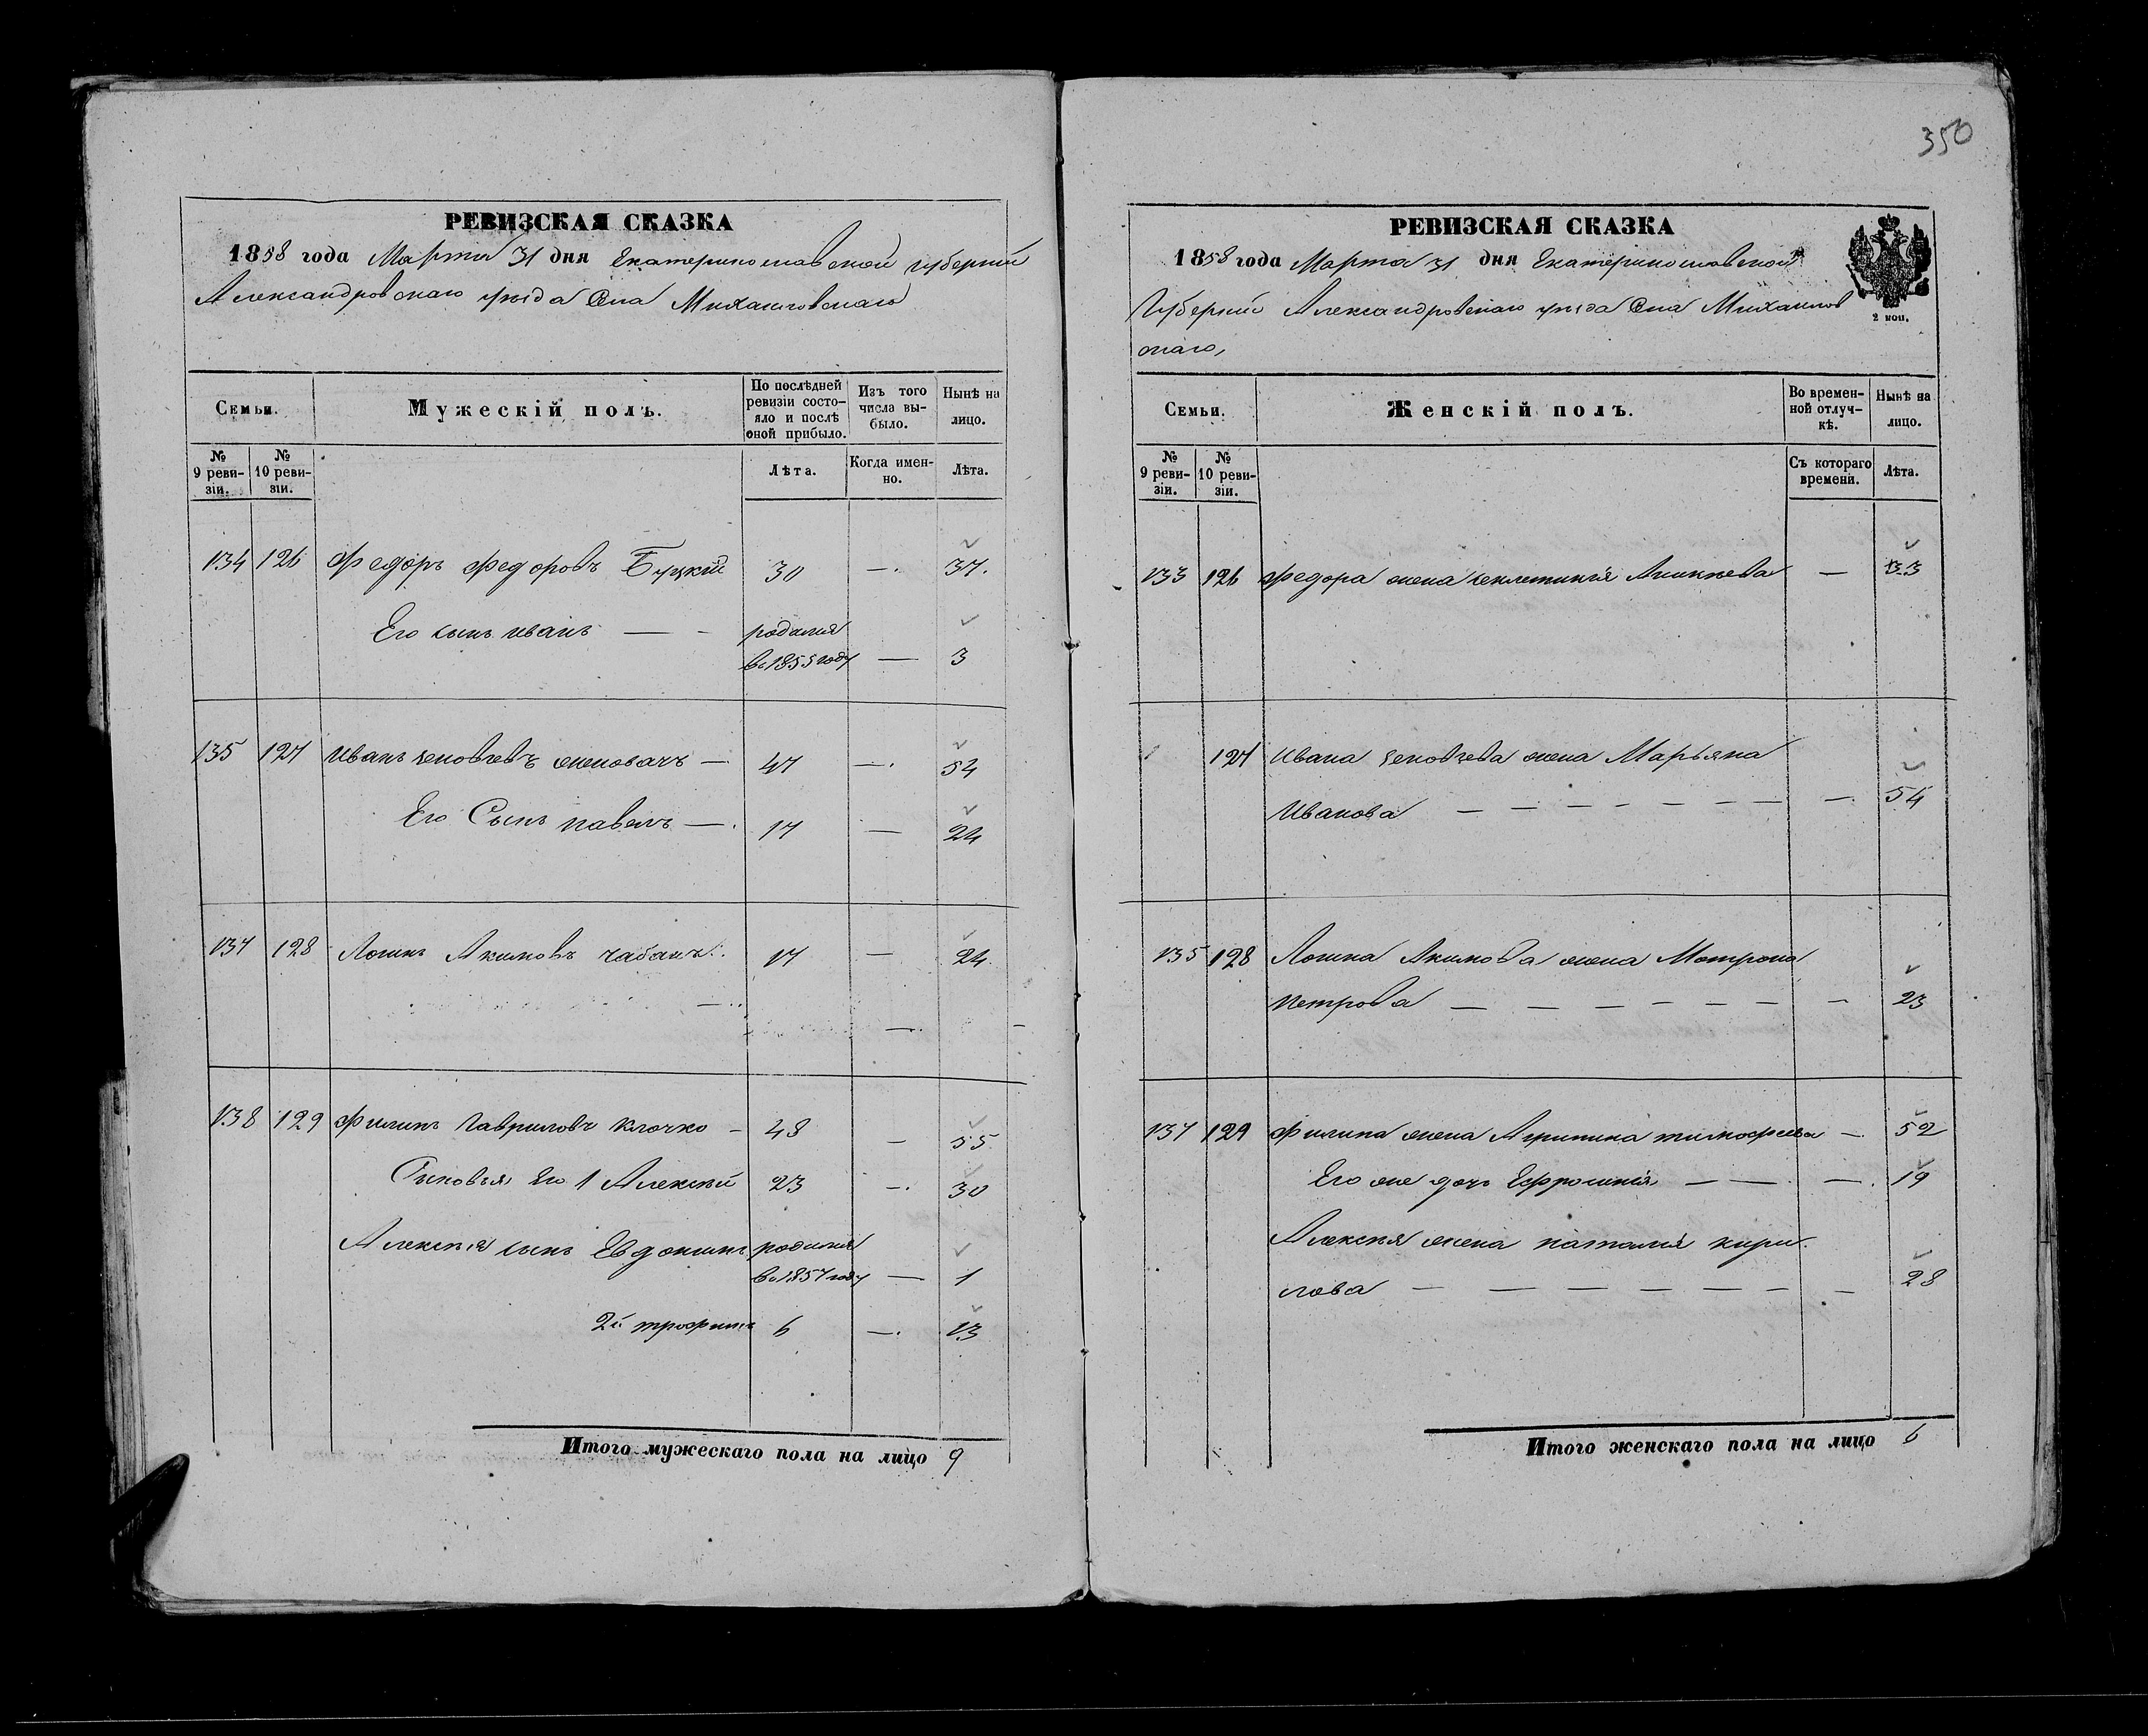 350
РЕВИЗСКАЯ СКАЗКА
1858 года Марта 31 дня Екатеринославской губернии
Александровскаго уѣзда Села Михайловскаго
Семьи.
Мужескій полъ.
По послѣдней ревизіи состо-
яло и послѣ оной прибыло.
Изъ того числа вы-
было.
Нынѣ на лицо.
№ 9 реви-
зіи.
№ 10 реви-
зіи.
Лѣта.
Когда имен-
но.
Лѣта.
134 126 Федоръ Федоровъ Буцкій 30 — 37.
Его сынъ иванъ — - родился
в 1855 году — 3
135 127 Иванъ — 47 — 54
Его Сынъ павелъ — 17 — 24
137 128 Логинъ Акимовъ чабанъ 17 — 24
138 129 Филипъ Гавриловъ Клочко - 48 — 55
Сыновья Его 1 Алексѣй 23 — 30
Алексѣя сынъ Евдокимъ родился
в 1857 году — 1
2й трофимъ 6 — 13
Итого мужескаго пола на лицо 9
РЕВИЗСКАЯ СКАЗКА
1858 года Марта 31 дня Екатеринославской
Губерніи Александровскаго уѣзда Села Михайлов
скаго,
2 коп.
Семьи.
Женскій полъ.
Во времен-
ной отлуч-
кѣ.
Нынѣ на лицо.
№ 9 реви-
зіи.
№ 10 реви-
зіи.
Съ котораго
времени.
Лѣта.
133 126 Федора жена — 33
127 Ивана жена Марьяна
Иванова — — — — — — — — 54
135 128 Логина Акимова жена Мотрона
петрова — — — — — — — — 23
137 129 Филипа жена Агрипина тимофеева — 52
Его же дочь Ефросинія — — — 19
Алексѣя жена наталія кири-
лова — — — — — — — — 28
Итого женскаго пола на лицо 6